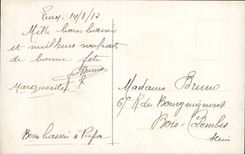 19/8/13
Mille bons baisers
et meilleurs souhaits
de bonne fête
Marguerite
Bons baisers à
Madame Brun
R. des Bourguignons
Bois-Colombes
Seine